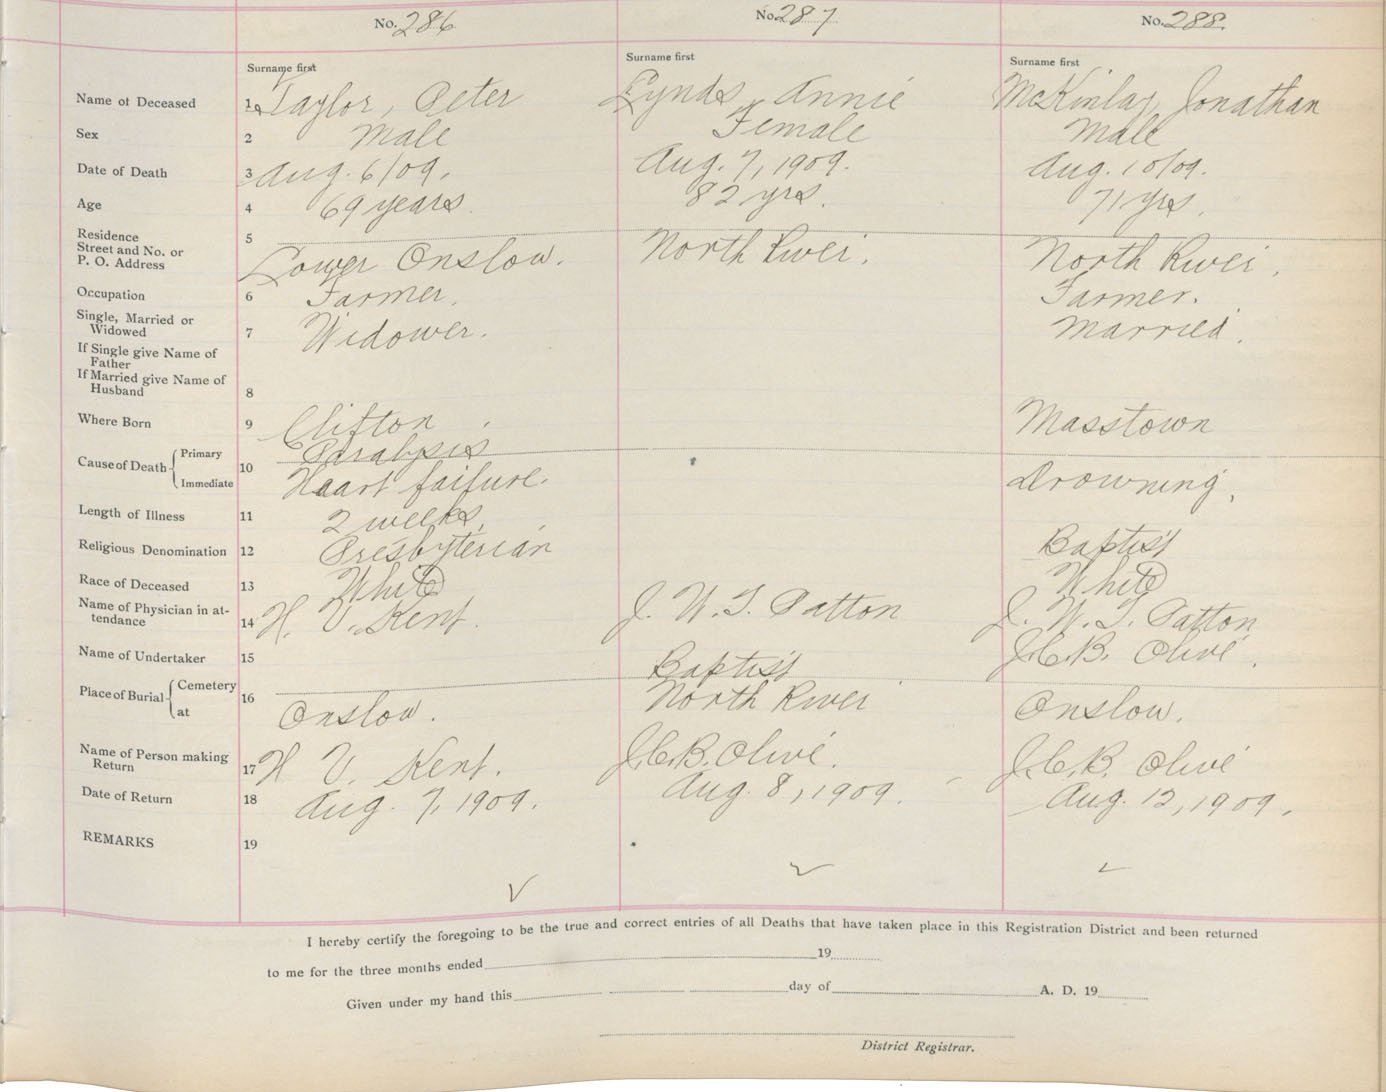 No. 286 No. 287 No. 288.
Surname first Surname first Surname first
Name of Deceased 1 Taylor, Peter Lynds, Annie McKinlay, Jonathan
Sex 2 Male Female Male
Date of Death 3 Aug. 6/09. Aug. 7, 1909. Aug. 10/09.
Age 4 69 years 82 yrs. 71 yrs.
Residence
Street and No. or
P. O. Address 5 Lower Onslow. North River. North River.
Occupation 6 Farmer. Farmer.
Single, Married or
Widowed 7 Widower. Married.
If Single give Name of
Father
If Married give Name of
Husband 8
Where Born 9 Clifton Masstown
Cause of Death Primary Paralysis
10
Immediate Heart failure. Drowning.
Length of Illness 11 2 weeks.
Religious Denomination 12 Presbyterian Baptist
Race of Deceased 13 White White
Name of Physician in at-
tendance 14 H. V. Kent. J. W. T. Patton J. W. T. Patton
Name of Undertaker 15 J.C.B. Olivé.
Place of Burial Cemetery 16 Baptist
at Onslow. North River Onslow.
Name of Person making
Return 17 H V. Kent. J.C.B. Olivé. J.C.B. Olivé
Date of Return 18 Aug. 7, 1909. Aug. 8, 1909. Aug. 12, 1909.
REMARKS 19
I hereby certify the foregoing to be the true and correct entries of all Deaths that have taken place in this Registration District and been returned
to me for the three months ended 19
Given under my hand this day of A. D. 19
District Registrar.